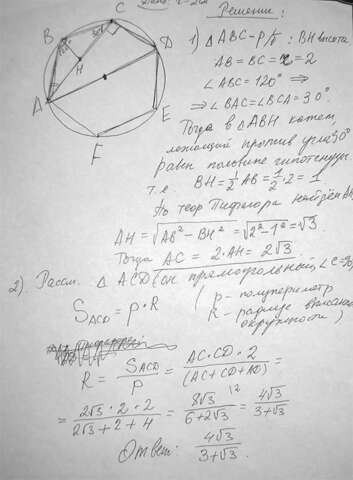 Решение:
C
B
D
H
A
E
F
1) △ABC - р/б: BH высота
AB = BC = r = 2
∠ABC = 120° ⇒
⇒ ∠BAC = ∠BCA = 30°.
Тогда в △ABH катет,
лежащий против угла 30°
равен половине гипотенузы
т.е BH = 1/2 AB = 1/2 · 2 = 1
По теор Пифагора найдём
AH = √AB² - BH² = √2² - 1² = √3.
Тогда AC = 2·AH = 2√3
2) Рассм. △ ACD (он прямоугольный,
S ACD = p · R
(p - полупериметр
R - радиус вписанной
окружности)
R = S ACD / p = AC·CD·2 / (AC+CD+AD) =
= 2√3 · 2 · 2 / 2√3 + 2 + 4 = 8√3 / 6+2√3 = 4√3 / 3+√3
Ответ: 4√3 / 3+√3.